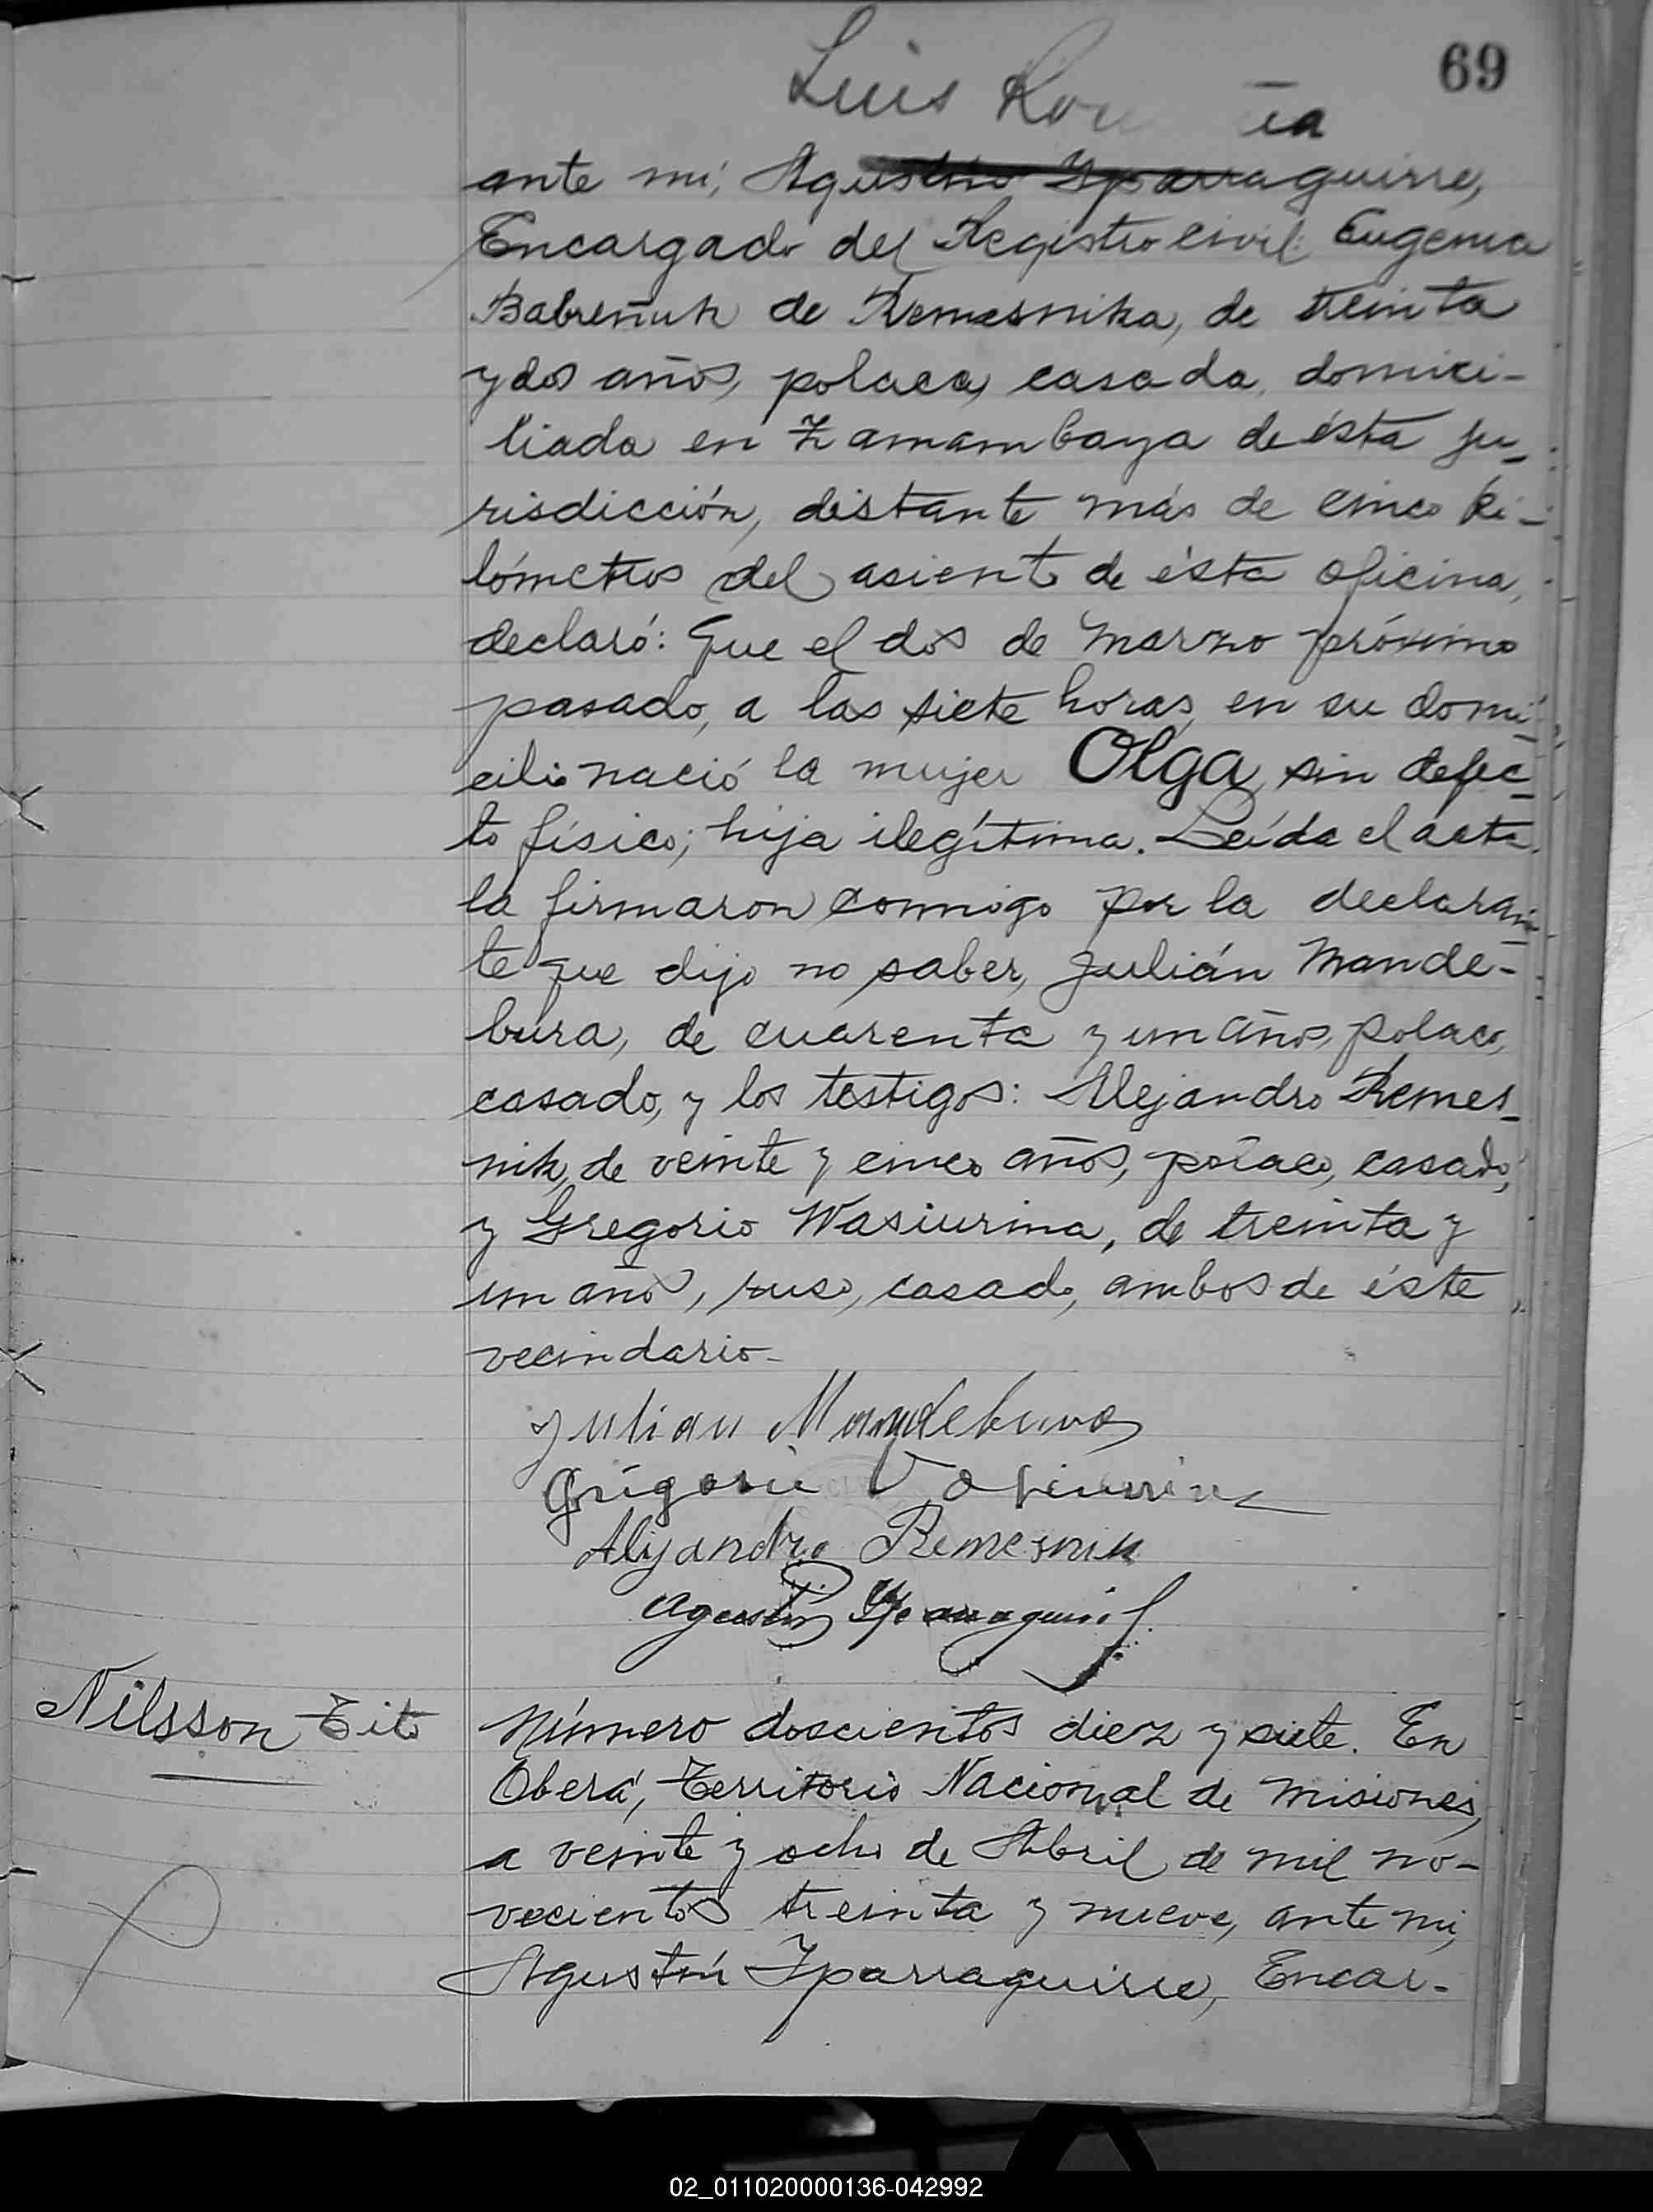 69
Luis
ante mi, Agustín Yparraguirre,
Encargado del Registro Civil: Eugenia
Babreñuk de Remesnika, de treinta
y dos años, polaca, casada, domici-
liada en Zamambaya de ésta ju-
risdicción, distante más de cinco ki-
lómetros del asiento de ésta oficina,
declaró: Que el dos de Marzo próximo
pasado, a las siete horas, en su domi-
cilio nació la mujer Olga, sin defec-
to físico; hija ilegítima. Leída el acta,
la firmaron conmigo por la declaran-
te que dijo no saber, Julián Mande-
bura, de cuarenta y un años, polaco,
casado, y los testigos: Alejandro Remes-
nik, de veinte y cinco años, polaco, casado,
y Gregorio Wasiurina, de treinta y
un años, ruso, casado, ambos de éste
vecindario-
Julian Mandebura
Grigorie
Alejandro Remesnik
Agustín Yparraguirre
Nilsson Tito
Número doscientos diez y siete. En
Oberá, Territorio Nacional de Misiones,
a veinte y ocho de Abril de mil no-
vecientos treinta y nueve, ante mi,
Agustín Yparraguirre, Encar-
02_011020000136-042992